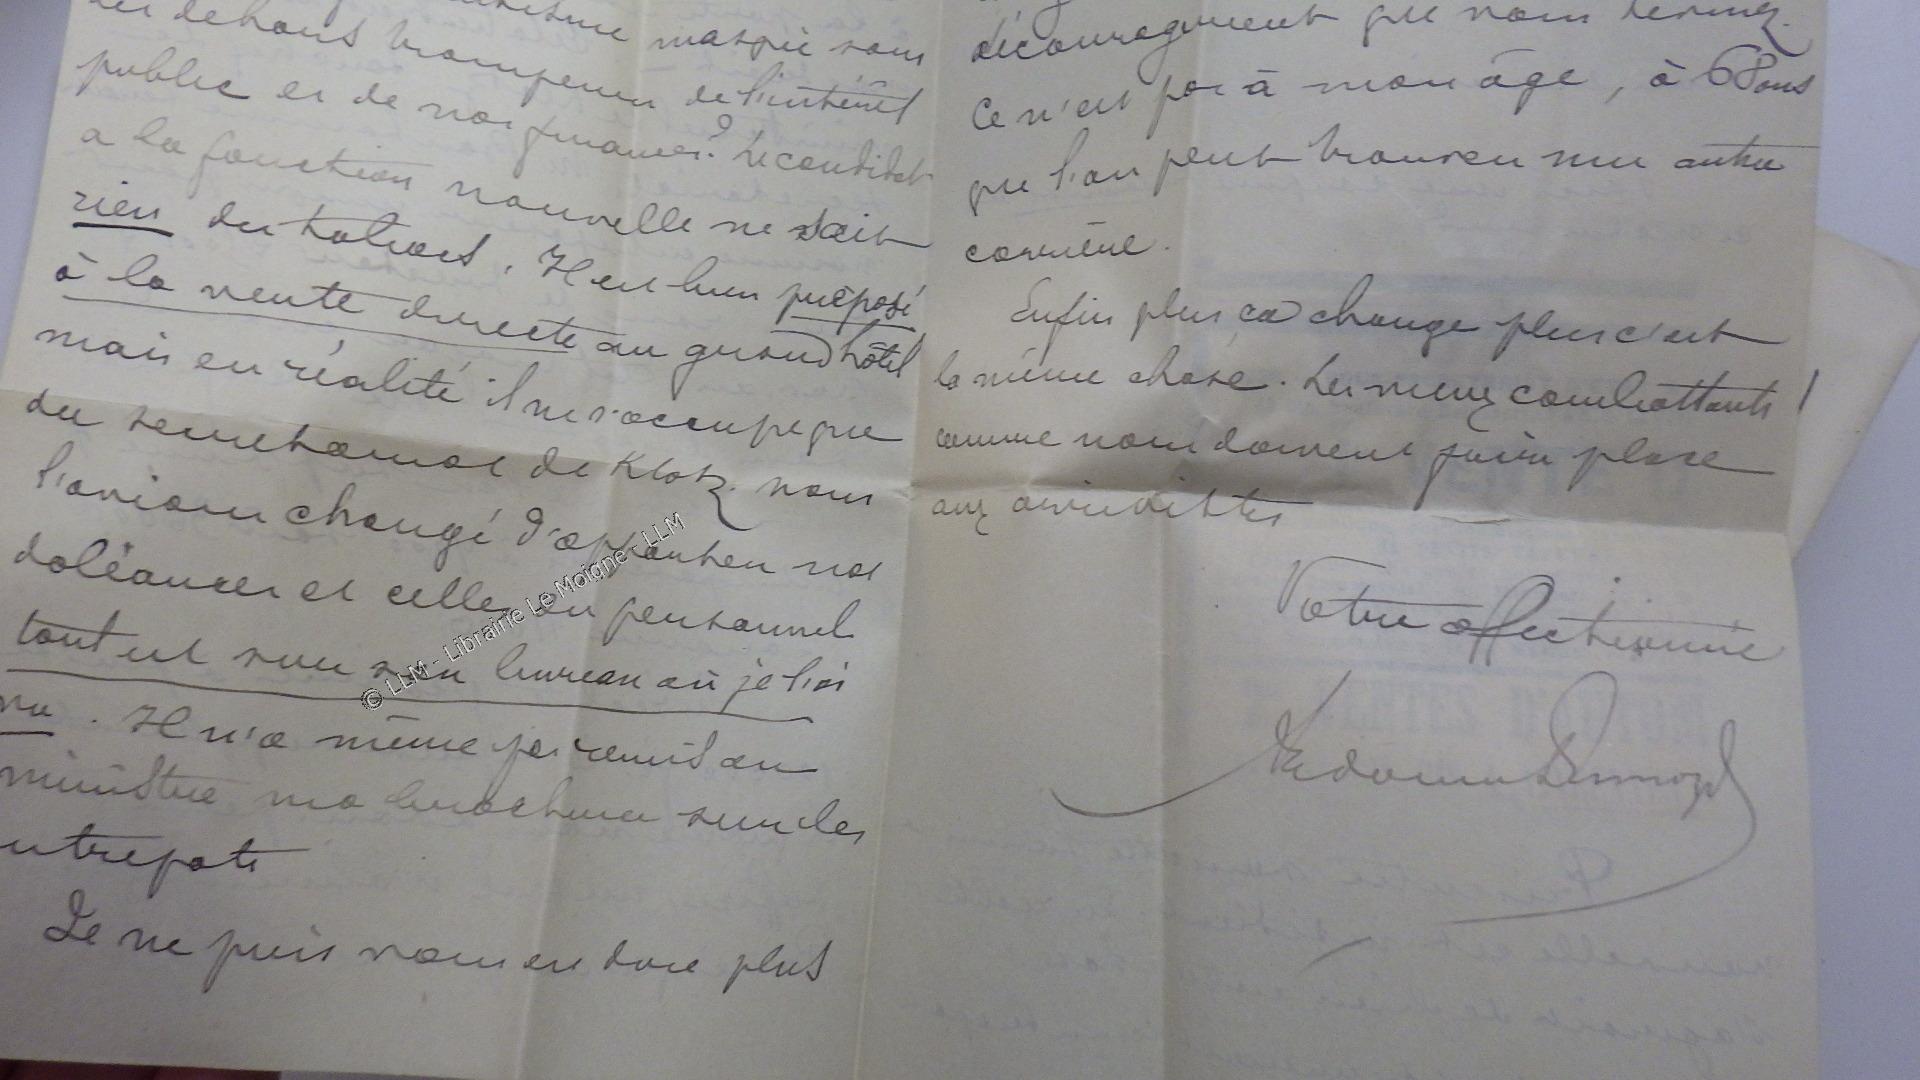 masqué sous
les dehors trompeurs de l'intérêt
public et de nos finances? Le candidat
a la fonction nouvelle ne sait
rien des tabacs. Il est bien préposé
à la vente directe au grand hôtel
mais en réalité il ne s'occupe que
du secrétariat de Klotz. nous
l'avions chargé d'apporter nos
doléances et celles du personnel
tout est sur son bureau où je l'ai
vu. Il n'a même pas remis au
ministre ma brochure sur les
entrepots
Je ne puis vous en dire plus
découragement que vous
Ce n'est pas à mon âge, à 68 ans
que l'on peut trouver une autre
carrière.
Enfin plus ca change plus c'est
la même chose. Les vieux combattants
comme nous doivent faire place
aux arrivistes!
Votre affectionné
© LLM - Librairie Le Moigne - LLM